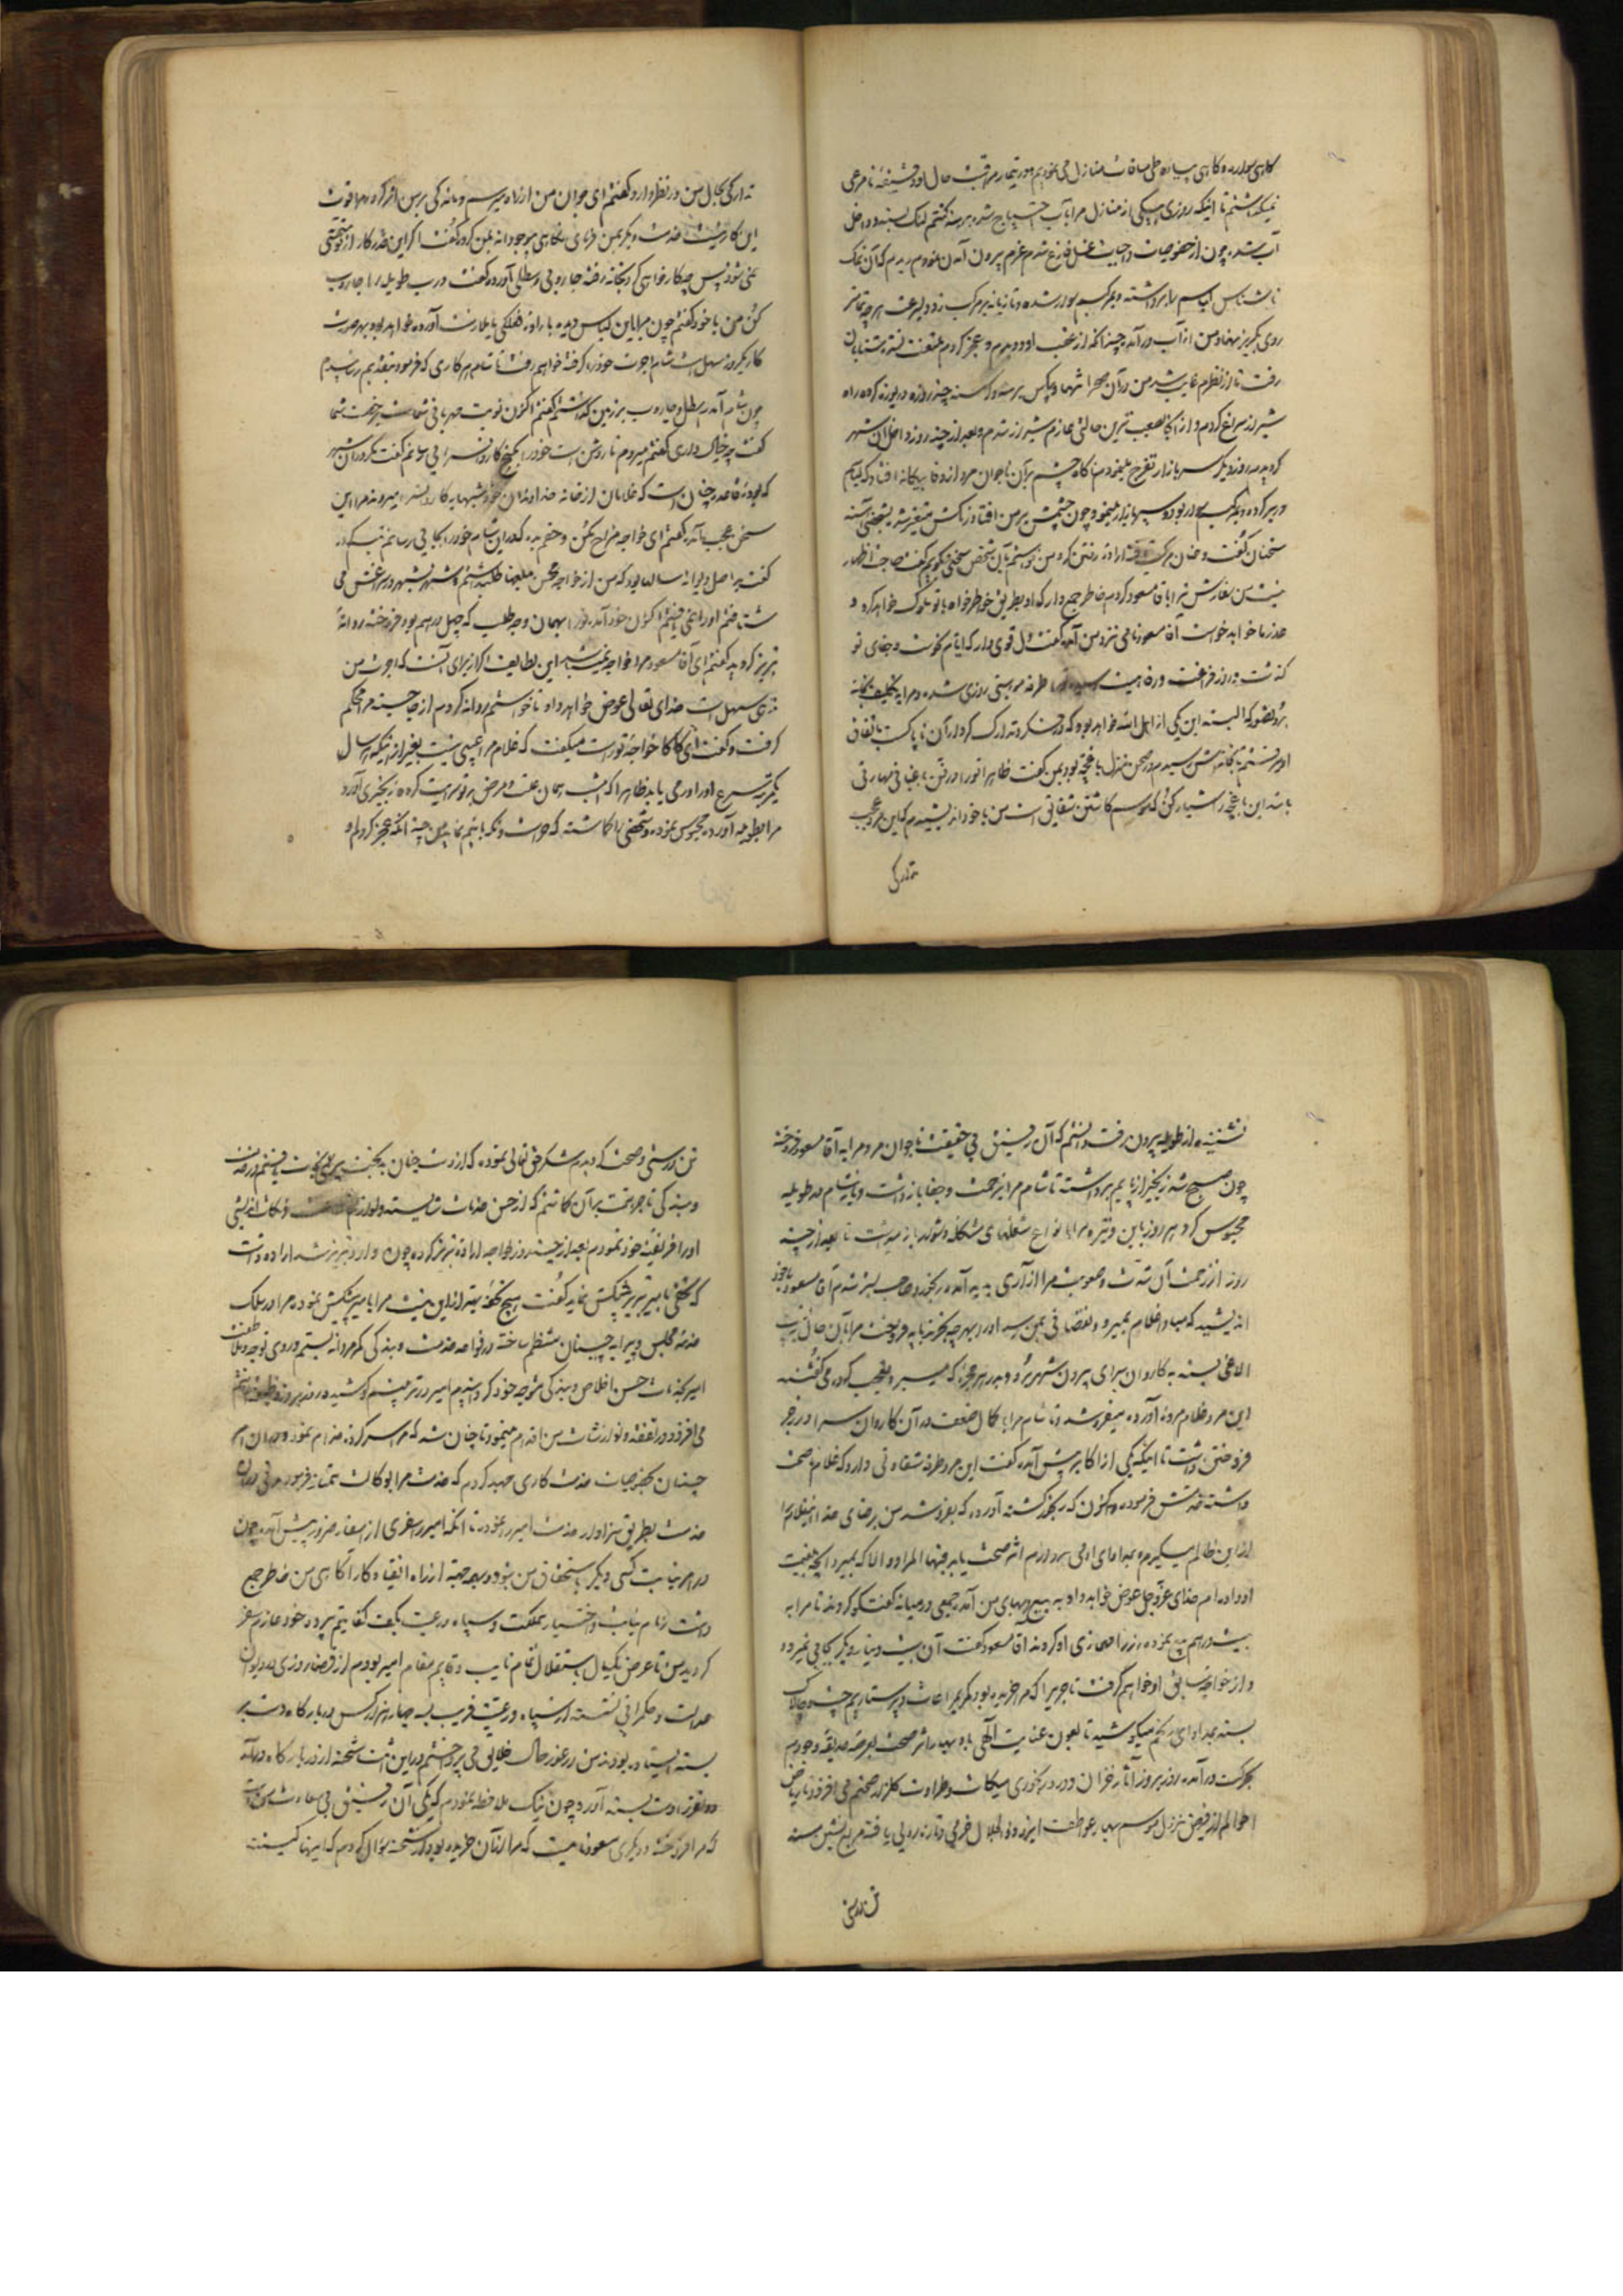 کاهی سواره و کاهی پیاده طی مسافت منازل می نمودیم و در تیمار مراقبت حال او دقیقهٔ نامرعی
نمیکذاشتم تا اینکه روزی در یکی از منازل مرا بآب احتیاج شد برهنه کشتم لنک بسته و داخل
آب شدم چون از خصوصیات واجبات غسل فارغ شدم عزم بیرون آمدن نمودم دیدم که آن نمک
ناشناس لباسم را برداشته و بمرکبم سوار شده و تازیانه بر مرکب زد و بسرعت هر چه تمامتر
روی بکریز نهاد و من از آب در آمده چندانکه از عقب او دویدم و عجز کردم ملتفت نشد شتابان
رفت تا از نظرم غایب شد من در آن صحرا تنها و بیکس برهنه و کرسنه چند روزه دریوزه کرده راه
شیراز سراغ کردم و از آنجا بصعب ترین حالتی عازم شیراز شدم و بعد از چند روز داخل آن شهر
کردیدم روز دیکر بسر بازار تفرج مینمودم ناکاه چشمم بر آن ناجوان مرد از وفا بیکانه افتاد که لباسم
در بر کرده و بمرکبم سوار بود و سیر بازار مینمود و چون چشمش بر من افتاد رنکش متغیر شد بشخصی آهسته
سخنان گفت و عنان مرکب تافته اراده رفتن کرد من خواستم بآن شخص سخنی بکویم گفت حاجت اظهار
نیست من سفارش ترا باقا مسعود کردم خاطر جمع دار که او بطریق خاطر خواه با تو سلوک خواهد کرد و
عذر ما خواهد خواست آقا مسعود نامی نزد من آمده گفت دل قوی دار که ایام کوفت و جفای تو
کذشت و روز فراغت و رفاهیت رسید طرفه مروتی روزی شده و مرا به تکلیف بخانه
برد و تصور که البته این یکی از اهل الله خواهد بود که تدارک کردار آن ناپاکست باتفاق
او رفتیم تا بخانه‌اش رسیدم در صحن منزل باغچه بود بمن گفت ظاهرا تو را در فن باغبانی مهارتی
باشد این باغچه را شیار کن که موسم کاشتن شقایق است من با خود اندیشیدم که این مرد عجب
تدارکی
تدارکی بحال من در نظر دارد گفتم ای جوان من از راه میرسم و ماندکی بر من اثر کرده مرا قوت
این کار نیست خدمت دیکر بمن فرمای نکاهی پر جودانه بمن کرد و گفت اکر این قدر کار از تو متمشی
نمیشود پس چکار خواهی کرد بخانه رفته جاروبی و سطلی آورده گفت درب طویله را جاروب
کن من با خود گفتم چون مرا باین لباس دیده باراده فعلکی یا عمارت آورده خواهد بود بهر صورت
کار یکروز سهل است شام اجرت خود را کرفته خواهم رفت تا شام هر کاری که فرمود بتقدیم رسانیدم
چون شام آمد سطل و جاروب بر زمین کذاشتم گفتم اکنون نوبت مهربانی شماست مرخصت شما
گفت چه خیال داری گفتم میروم تا روشن است خود را بکنج کاروانسرایی رسانم گفت مکر در آن شهر
که بودهٔ قاعده چنان است که غلامان از خانه خداوندان خود شبها به کاروانسرا میروند مرا این
سخن عجب آمد گفتم ای خواجه مزاح مکن و حقم بده که در این شام خود را بجائی رسانم تبسم کرده
گفت پر اصل دیوانه سالها بود که من از خواجه محسن مبلغها طلب داشتم و شهر بشهر در سراغش می
شتافتم او را نمی یافتم اکنون خود آمده تو را بهمان وجه طلب که چهل درهم بود فروخته روانهٔ
تبریز کردید گفتم ای آقا مسعود مرا خواجه نمیباشد این لطایف اکر از برای آنست که اجرت من
ندهی سهل است خدای تعالی عوض خواهد داد تا خواستم روانه کردم از جا جسته مرا محکم
کرفت و گفت ای کاکا خواجهٔ تو راست میکفت که غلام مرا عیبی نیست بغیر از اینکه هر سال
یکمرتبه صرع او را در می یابد ظاهرا که امشب همان علت و مرض بر تو سرایت کرده زنجیری آورد
مرا بطویله آورده محبوس نموده و شخصی را کماشته که حراست و نکهبانیم نماید من چندانکه عجز کردم او
نشنیده از طویله بیرون رفت دانستم که آن رفیق بی حقیقت ناجوان مرد مرا به آقا مسعود فروخته
چون صبح شد زنجیر از پایم برداشته تا شام مرا بزحمت و جفا بازداشت و باز شام در طویله
محبوس کرد هر روز باین وتیره مرا بانواع شغلهای مشکله و دشوار باز میداشت تا بعد از چند
روز از زحمت آن شدت و صعوبت مرا آزاری پدید آمده رنجور و صاحب بستر شدم آقا مسعود با خود
اندیشید که مبادا غلام بمیرد و نقصانی بمن رسد او را بهر چه بخرند باید فروخت مرا بآن حال بر پشت
الاغی بسته به کاروان سرای بیرون شهر برد و بدر هر حجره که میبرد تعجب کرده می گفتند
این مرد غلام مرده آورده میفروشد و تا شام مرا با کمال ضعف در آن کاروان سرا در زجر
فروختن داشت تا اینکه یکی از اکابر پیش آمده گفت این مرد طرفه شقاوتی دارد که غلام تا صحت
داشته خدمتش فرموده و اکنون که رنجور کشته آورده که بفروشد من برضای خدا این غلام را
از این ظالم میکیرم و بمداوای او می پردازم اثر صحت یابد فبها المراد و الا که بمیرد آنچه بقیمت
او داده ام خدای عز و جل عوض خواهد داد به بیع و بهای من آمده جمعی در میانه گفتکو کردند تا مرا به
بیست درهم بیع نموده زر را بجاری او کردند آقا مسعود گفت آن بیست دینار دیکر بجائی نمیرود
و از خواجه سابق او خواهم کرفت تا جریرا که مرا خریده بود بکریم مراعات و پرستاریم چست و چالاک
بسته بمداوای رنجم میکوشید تا بعون عنایت الهی باد بهار اثر صحت بعرصه حدیقه وجودم
بحرکت در آمده روز بروز آثار خزان و درد رنجوری میکاست و طراوت کلزار صحتم می افزود تا ریاض
احوالم از فیض نزول موسم بهار عواطف ایزد ذوالجلال خرمی و تازه رویی یافته مربع نشین مسند
تن درستی
تن درستی و صحت کردیدم شکر حق تعالی نموده که از دست چنان بدبختی بی رحم نجات یافتم در خدمت
و بندکی تاجر همت بر آن کماشتم که از حسن خدمات شایسته و لوازم و نکات اندیشی
او را فریفتهٔ خود نمودم بعد از چند روز خواجه ارادهٔ تبریز کرده چون وارد تبریز شد اراده داشت
که تحفی بامیر تبریز پیشکش نماید گفت هیچ تحفه بهتر از این نیست مرا بامیر پیشکش نمود و مرا در سلک
خدمهٔ مجلس و پیرایه چیستان منتظم ساخته در خواصه خدمت و بندکی کمر مردانه بستم و روی توجه و عاطفت
امیر بخدمات حسن اخلاص و بندکی متوجه خود کردانیدم امیر در تربیتم کوشیده روز بروز
می افزود و در تفقد و نوازشات بمن اقدام مینمود تا چنان شد که مرا سر کرده خدام نمود و در آن امر
چنان بخصوصیات خدمت کاری جهد کردم که خدمت مرا بوکالت ممتاز فرمود مدتی در آن
خدمت بطریق سزاوار خدمت امیر را نمودم تا آنکه امیر را سفری از اسفار ضرور پیش آمده چون
در امر نیابت کسی دیکر باستحقاق من نبود و بهمه جهت از راه انقیاد و کار آکاهی من خاطر جمع
داشت زمام نیابت و اختیار مملکت و سپاه و رعیت بکف کفایتم سپرده خود عازم سفر
کردید من تا عرض یکسال باستقلال تمام نایب و قایم مقام امیر بودم از قضا روزی در دیوان
عدالت و حکمرانی نشسته از سپاه و رعیت قریب بسه چهار هزار کس در بارکاه دست بر
بسته ایستاده بودند من در غور حال خلایق می پرداختم در این اثنا شحنه از در بارکاه در آمد
دو نفر را دست بسته آورد چون نیک ملاحظه نمودم که یکی آن رفیق بی سعادت من است
که مرا فروخته و دیکری مسعود نامیست که مرا از آن خریده بود از شحنه سؤال کردم که اینها کیستند